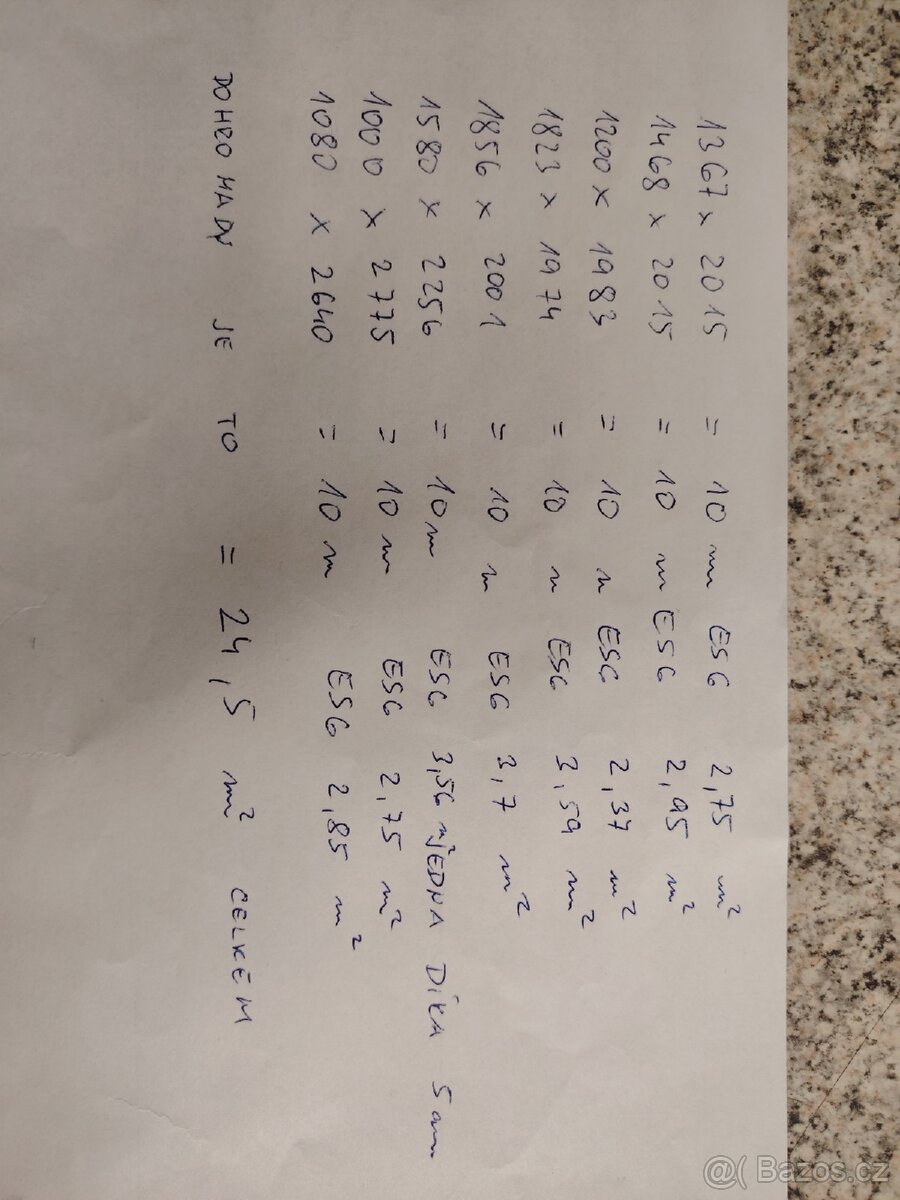 1367 x 2015 = 10 m ESG 2,75 m²
1468 x 2015 = 10 m ESG 2,95 m²
1200 x 1983 = 10 m ESG 2,37 m²
1823 x 1974 = 10 m ESG 3,59 m²
1856 x 2001 = 10 m ESG 3,7 m²
1580 x 2256 = 10 m ESG 3,56 JEDNA DÍRA 5 cm
1000 x 2775 = 10 m ESG 2,75 m²
1080 x 2640 = 10 m ESG 2,85 m²
DOHROMADY JE TO = 24,5 m² CELKEM
@( Bazos.cz